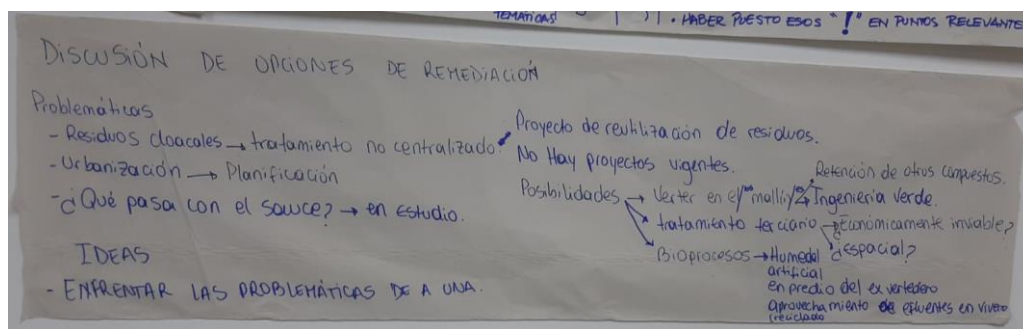 TEMÁTICAS!
• HABER PUESTO ESOS "!" EN PUNTOS RELEVANTE
DISCUSIÓN DE OPCIONES DE REMEDIACIÓN
Problemáticas
- Residuos cloacales → tratamiento no centralizado.
- Urbanización → Planificación
- ¿Qué pasa con el sauce? → en estudio.
IDEAS
- ENFRENTAR LAS PROBLEMÁTICAS DE A UNA.
Proyecto de reutilización de residuos.
No Hay proyectos vigentes.
Retención de otros compuestos.
Posibilidades → Verter en el "mallín" Ingeniería verde.
tratamiento terciario → ¿Económicamente inviable?
¿Espacial?
Bioprocesos → Humedal
artificial
en predio del ex vertedero
aprovechamiento de efluentes en vivero
(reciclado